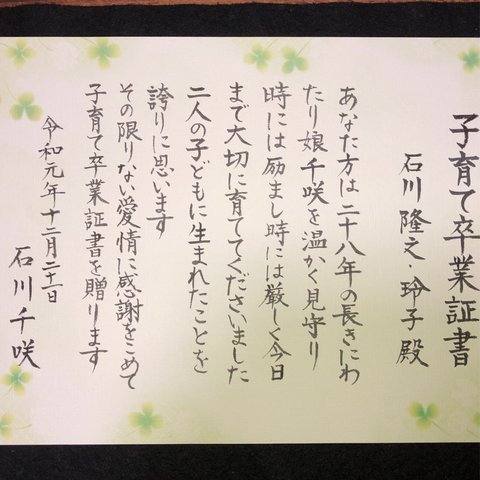 子育て卒業証書
石川隆之・玲子殿
あなた方は二十八年の長きにわ
たり娘千咲を温かく見守り
時には励まし時には厳しく今日
まで大切に育ててくださいました
二人の子どもに生まれたことを
誇りに思います
その限りない愛情に感謝をこめて
子育て卒業証書を贈ります
令和元年十二月二十二日
石川千咲